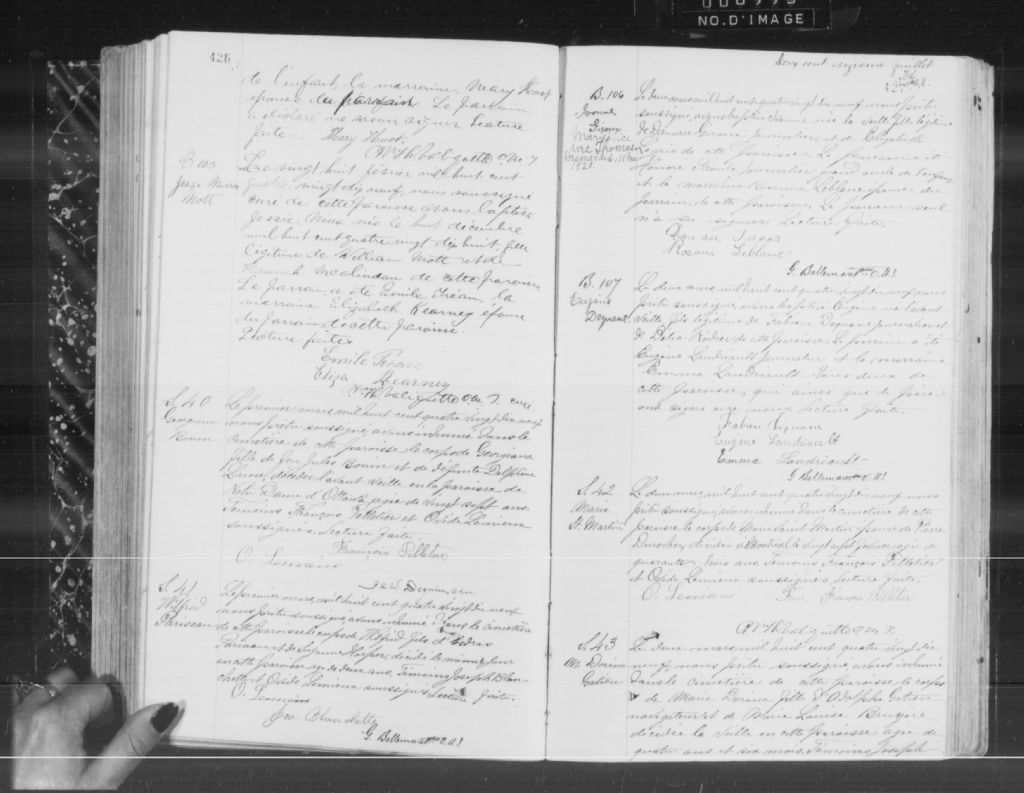 NO. D'IMAGE
426
de l'enfant, la marraine Mary Huot
épouse du parrain Le parrain
a déclaré ne savoir signer. Lecture
faite. Mary Huot.
B 105
Mott
Le vingt huit février mil huit cent
quatre vingt dix neuf, nous soussigné
curé de cette paroisse avons baptisé
Jessie Mina née le huit décembre
mil huit cent quatre vingt dix huit, fille
légitime de William Mott et de
Hannah de cette paroisse
Le parrain a été Emile Tréau, la
marraine Elizabeth Kearney épouse
du parrain de cette paroisse.
Lecture faite.
Emile
Eliza Kearney
curé
S. 40
Georgina
Bonin
Le premier mars, mil huit cent quatre vingt dix neuf
nous prêtre soussigné, avons inhumé dans le
cimetière de cette paroisse le corps de Georgiana
fille de feu Jules Bonin et de défunte Delphine
décédée l'avant veille en la paroisse de
Notre Dame d'Ottawa, agée de vingt sept ans.
Témoins François Pelletier et Ovide Lemieux
soussignés. Lecture faite.
François Pelletier
O. Lemieux
S. 41
Wilfrid
Pariseau
Le premier mars, mil huit cent quatre vingt dix neuf
nous prêtre soussigné, avons inhumé dans le cimetière
de cette paroisse le corps de Wilfrid fils d'
Pariseau et de Suzanne Harper, décédé le même jour
en cette paroisse agé de deux ans, Témoins Joseph Blan-
chette et Ovide Lemieux soussignés Lecture faite.
O. Lemieux
Jos Blanchette
G. Bellemare
Deux cent seizième feuillet
B. 106
Giroux
Thomas
Desmarais, 11
1921
Le deux mars, mil huit cent quatre vingt dix neuf, nous prêtre
soussigné, avons baptisé née la veille fille légitime
de Giroux journalier, et de Elizabeth
de cette paroisse. Le parrain a été
journalier grand oncle de l'enfant
et la marraine Rosanna Leblanc épouse du
parrain, de cette paroisse. Le parrain seul
n'a su signer. Lecture faite.
Rosana Leblanc
G. Bellemare
B. 107
Eugène
Deguane
Le deux mars, mil huit cent quatre vingt dix neuf, nous
prêtre soussigné, avons baptisé Eugène né l'avant
veille, fils légitime de Fabien Deguane journalier et
de Délia Rodier de cette paroisse, Le parrain a été
Eugène Landriault journalier et la marraine
Emma Landriault tous deux de
cette paroisse, qui ainsi que le père
ont signé avec nous. Lecture faite.
Fabien
Eugène Landriault
Emma Landriault
G. Bellemare
S. 42
Marie
St. Martin
Le deux mars, mil huit cent quatre vingt dix neuf, nous
prêtre soussigné, avons inhumé dans le cimetière de cette
paroisse le corps de Marie Saint Martin épouse de Pierre
Durocher, décédée à Montréal le vingt sept février agée de
quarante trois ans Témoins François Pelletier
et Ovide Lemieux soussignés, Lecture faite.
O. Lemieux François Pelletier
S. 43
M. Dorina
Gatien
Le deux mars, mil huit cent quatre vingt dix
neuf, nous prêtre soussigné, avons inhumé
dans le cimetière de cette paroisse le corps
de Marie Dorina fille d'Adolphe Gatien
navigateur et de Marie Louise Bruyère
décédée la veille en cette paroisse agée de
quatre ans et six mois. Témoins Joseph